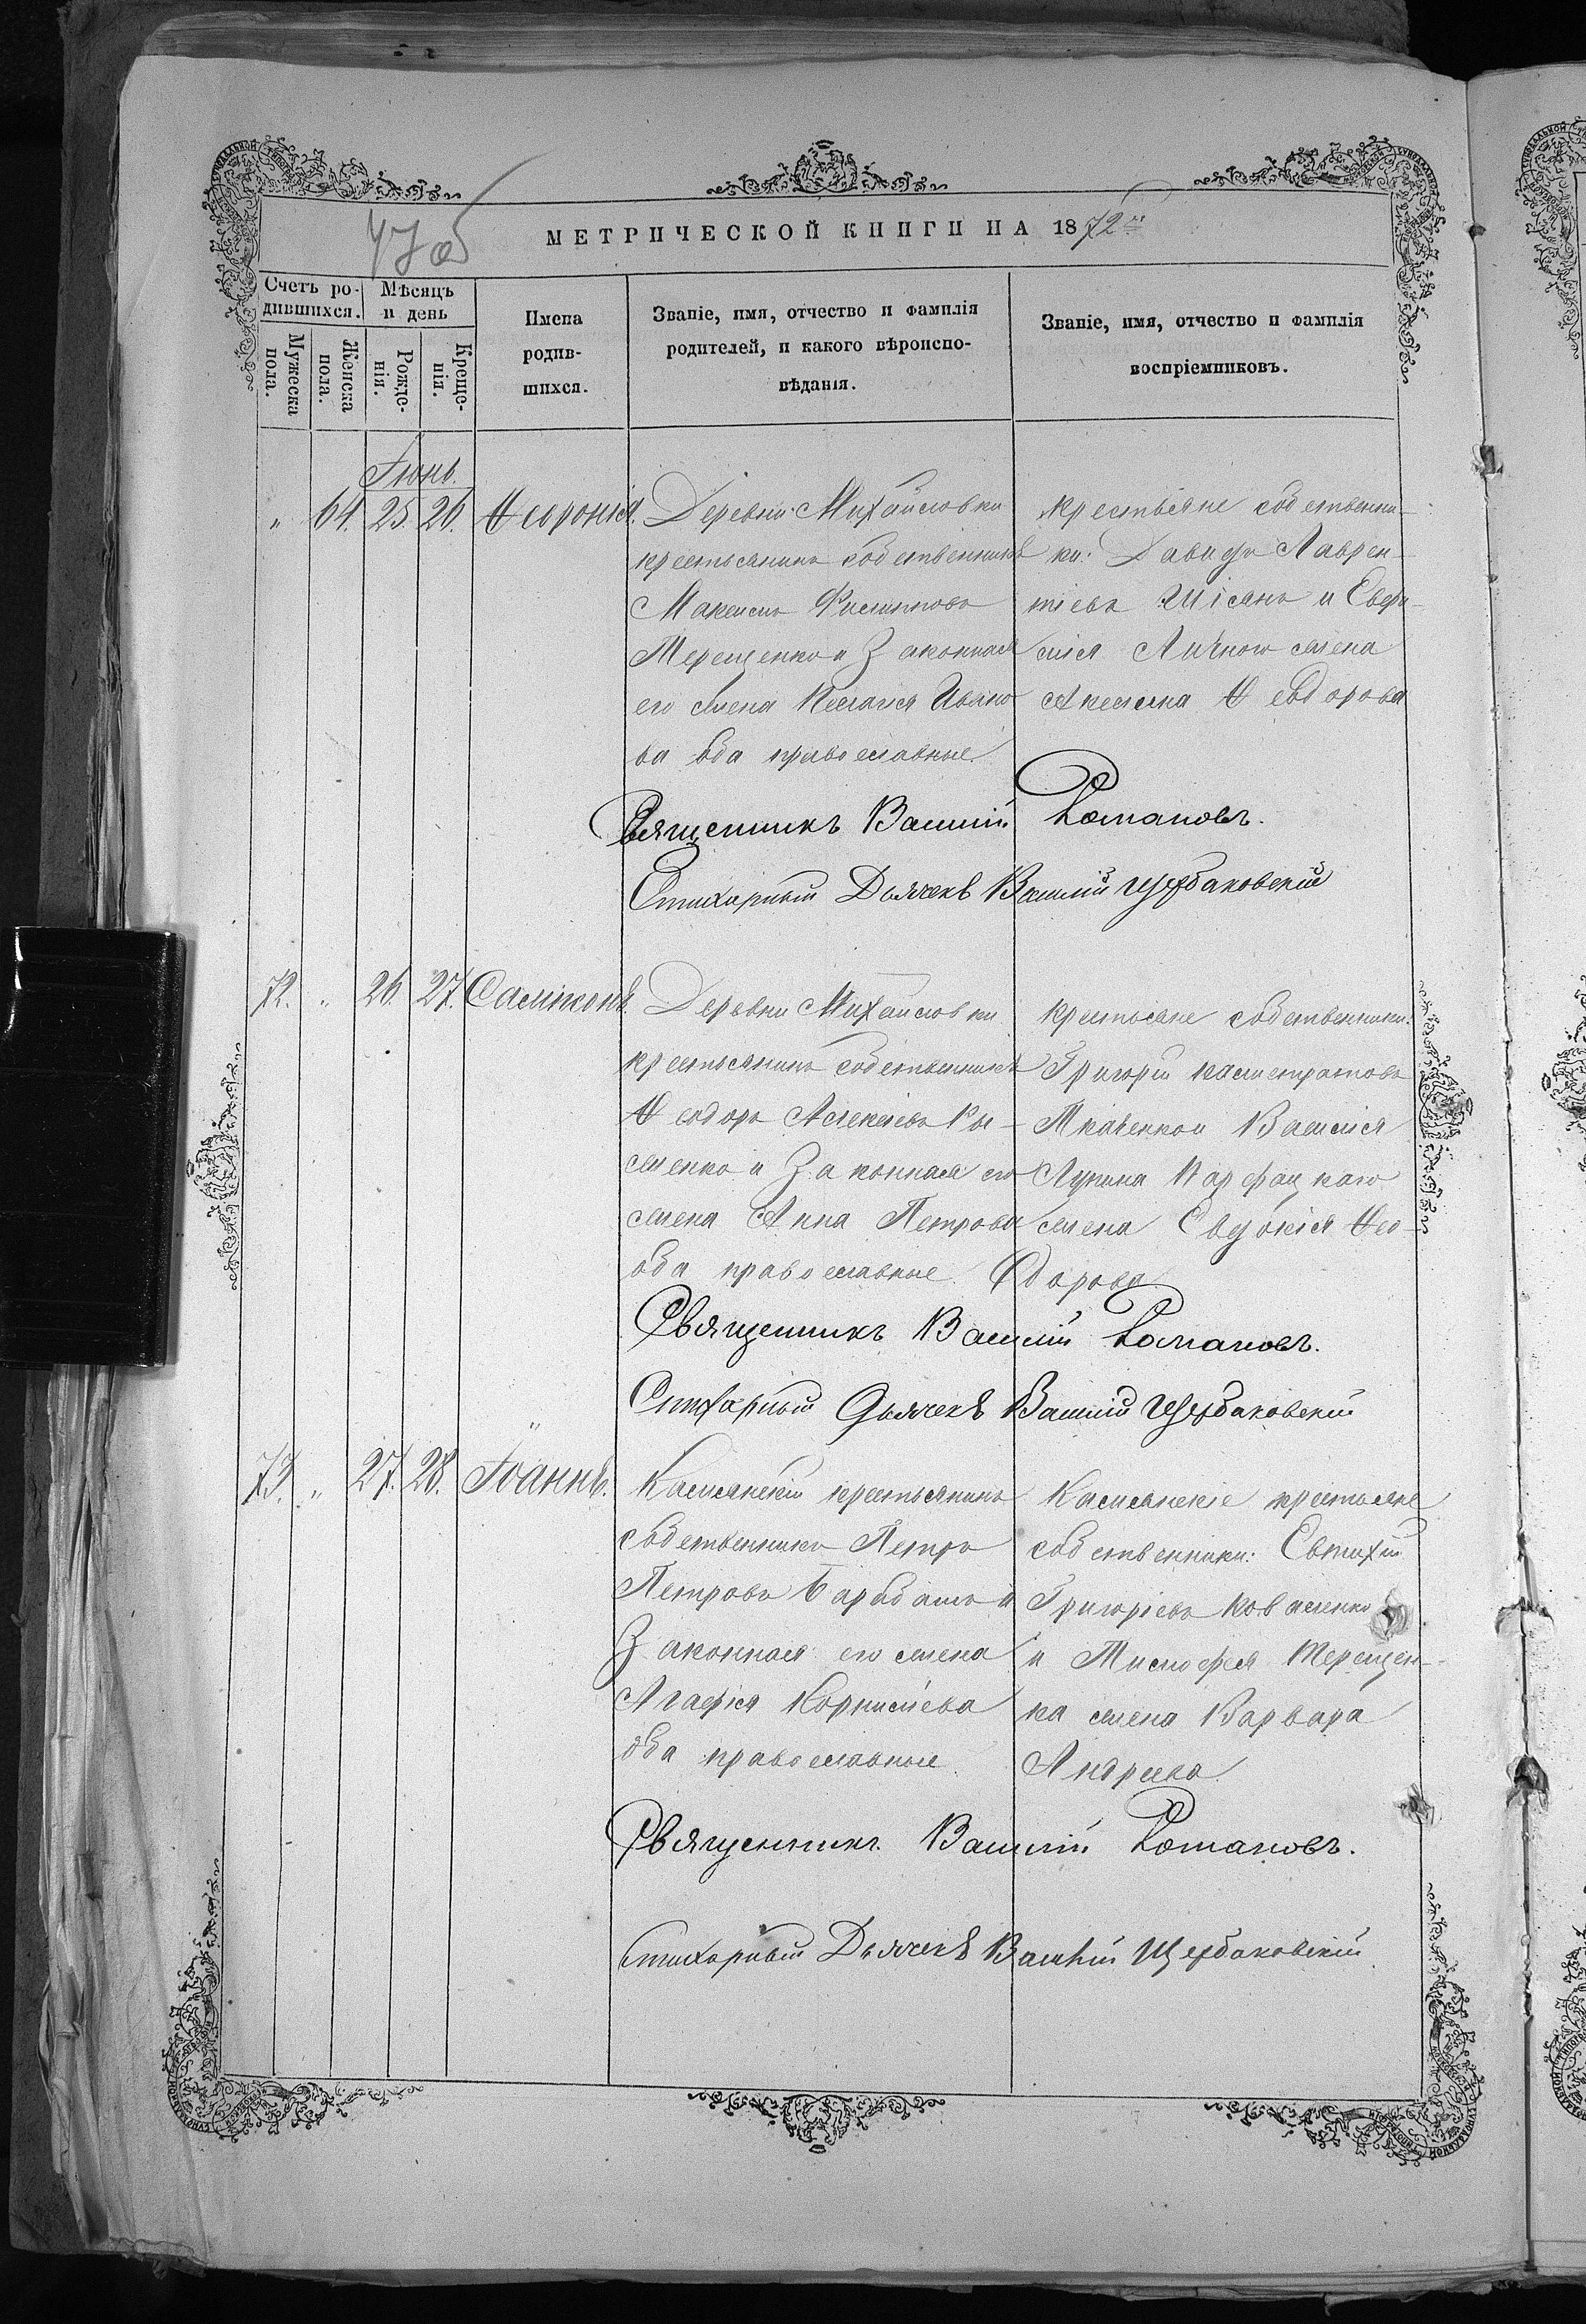 47 об
МЕТРИЧЕСКОЙ КНИГИ НА 1872
Счетъ ро-
дившихся.
Мужеска
пола.
Женска
пола.
Мѣсяцъ
и день
Рожде-
нія.
Креще-
нія.
Имена
родив-
шихся.
Званіе, имя, отчество и фамилія
родителей, и какого вѣроиспо-
вѣданія.
Званіе, имя, отчество и фамилія
воспріемниковъ.
Іюнь.
" 64. 25. 26. Ѳевронія.
Деревни Михайловки
крестьянинъ собственникъ
Максимъ Филиповъ
Терещенко и Законная
его жена Пелагія Ивано
ва оба православные.
крестьяне собственни-
ки: Давидъ Лаврен-
тіевъ и Евфи-
мія жена
Ѳеодорова
Священникъ Василій Романовъ.
Стихарный Дьячекъ Василій Щербаковскій
72. " 26. 27. Сампсонъ.
Деревни Михайловки
крестьянинъ собственникъ
Ѳеодоръ Алексѣевъ
и Законная его
жена Анна Петрова
оба православные.
крестьяне собственники:
Григорій Калистратовъ
Ткаченко и Василія
жена Евдокія Ѳео-
дорова
Священникъ Василій Романовъ.
Стихарный Дьячекъ Василій Щербаковскій
73. " 27. 28. Іоаннъ.
крестьянинъ
собственникъ Петръ
Петровъ Барабашъ и
Законная его жена
Агафія Корнилиева
оба православные.
крестьяне
собственники: Евтихій
Григоріевъ Коваленко
и Тимофея Терещен-
ка жена Варвара
Андреева.
Священникъ Василій Романовъ.
Стихарный Дьячекъ Василій Щербаковскій